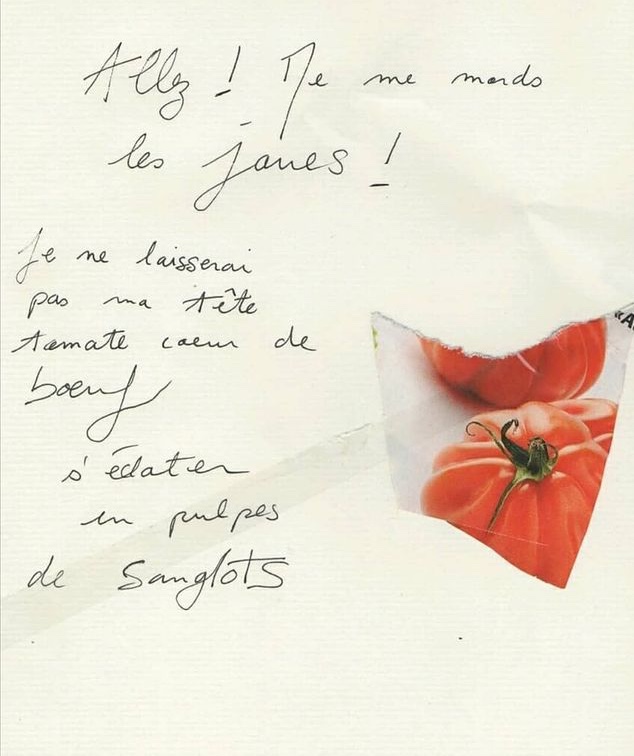 Allez ! Je me mords
les joues !
Je ne laisserai
pas ma tête
tomate coeur de
boeuf
s'éclater
en pulpes
de Sanglots
«A